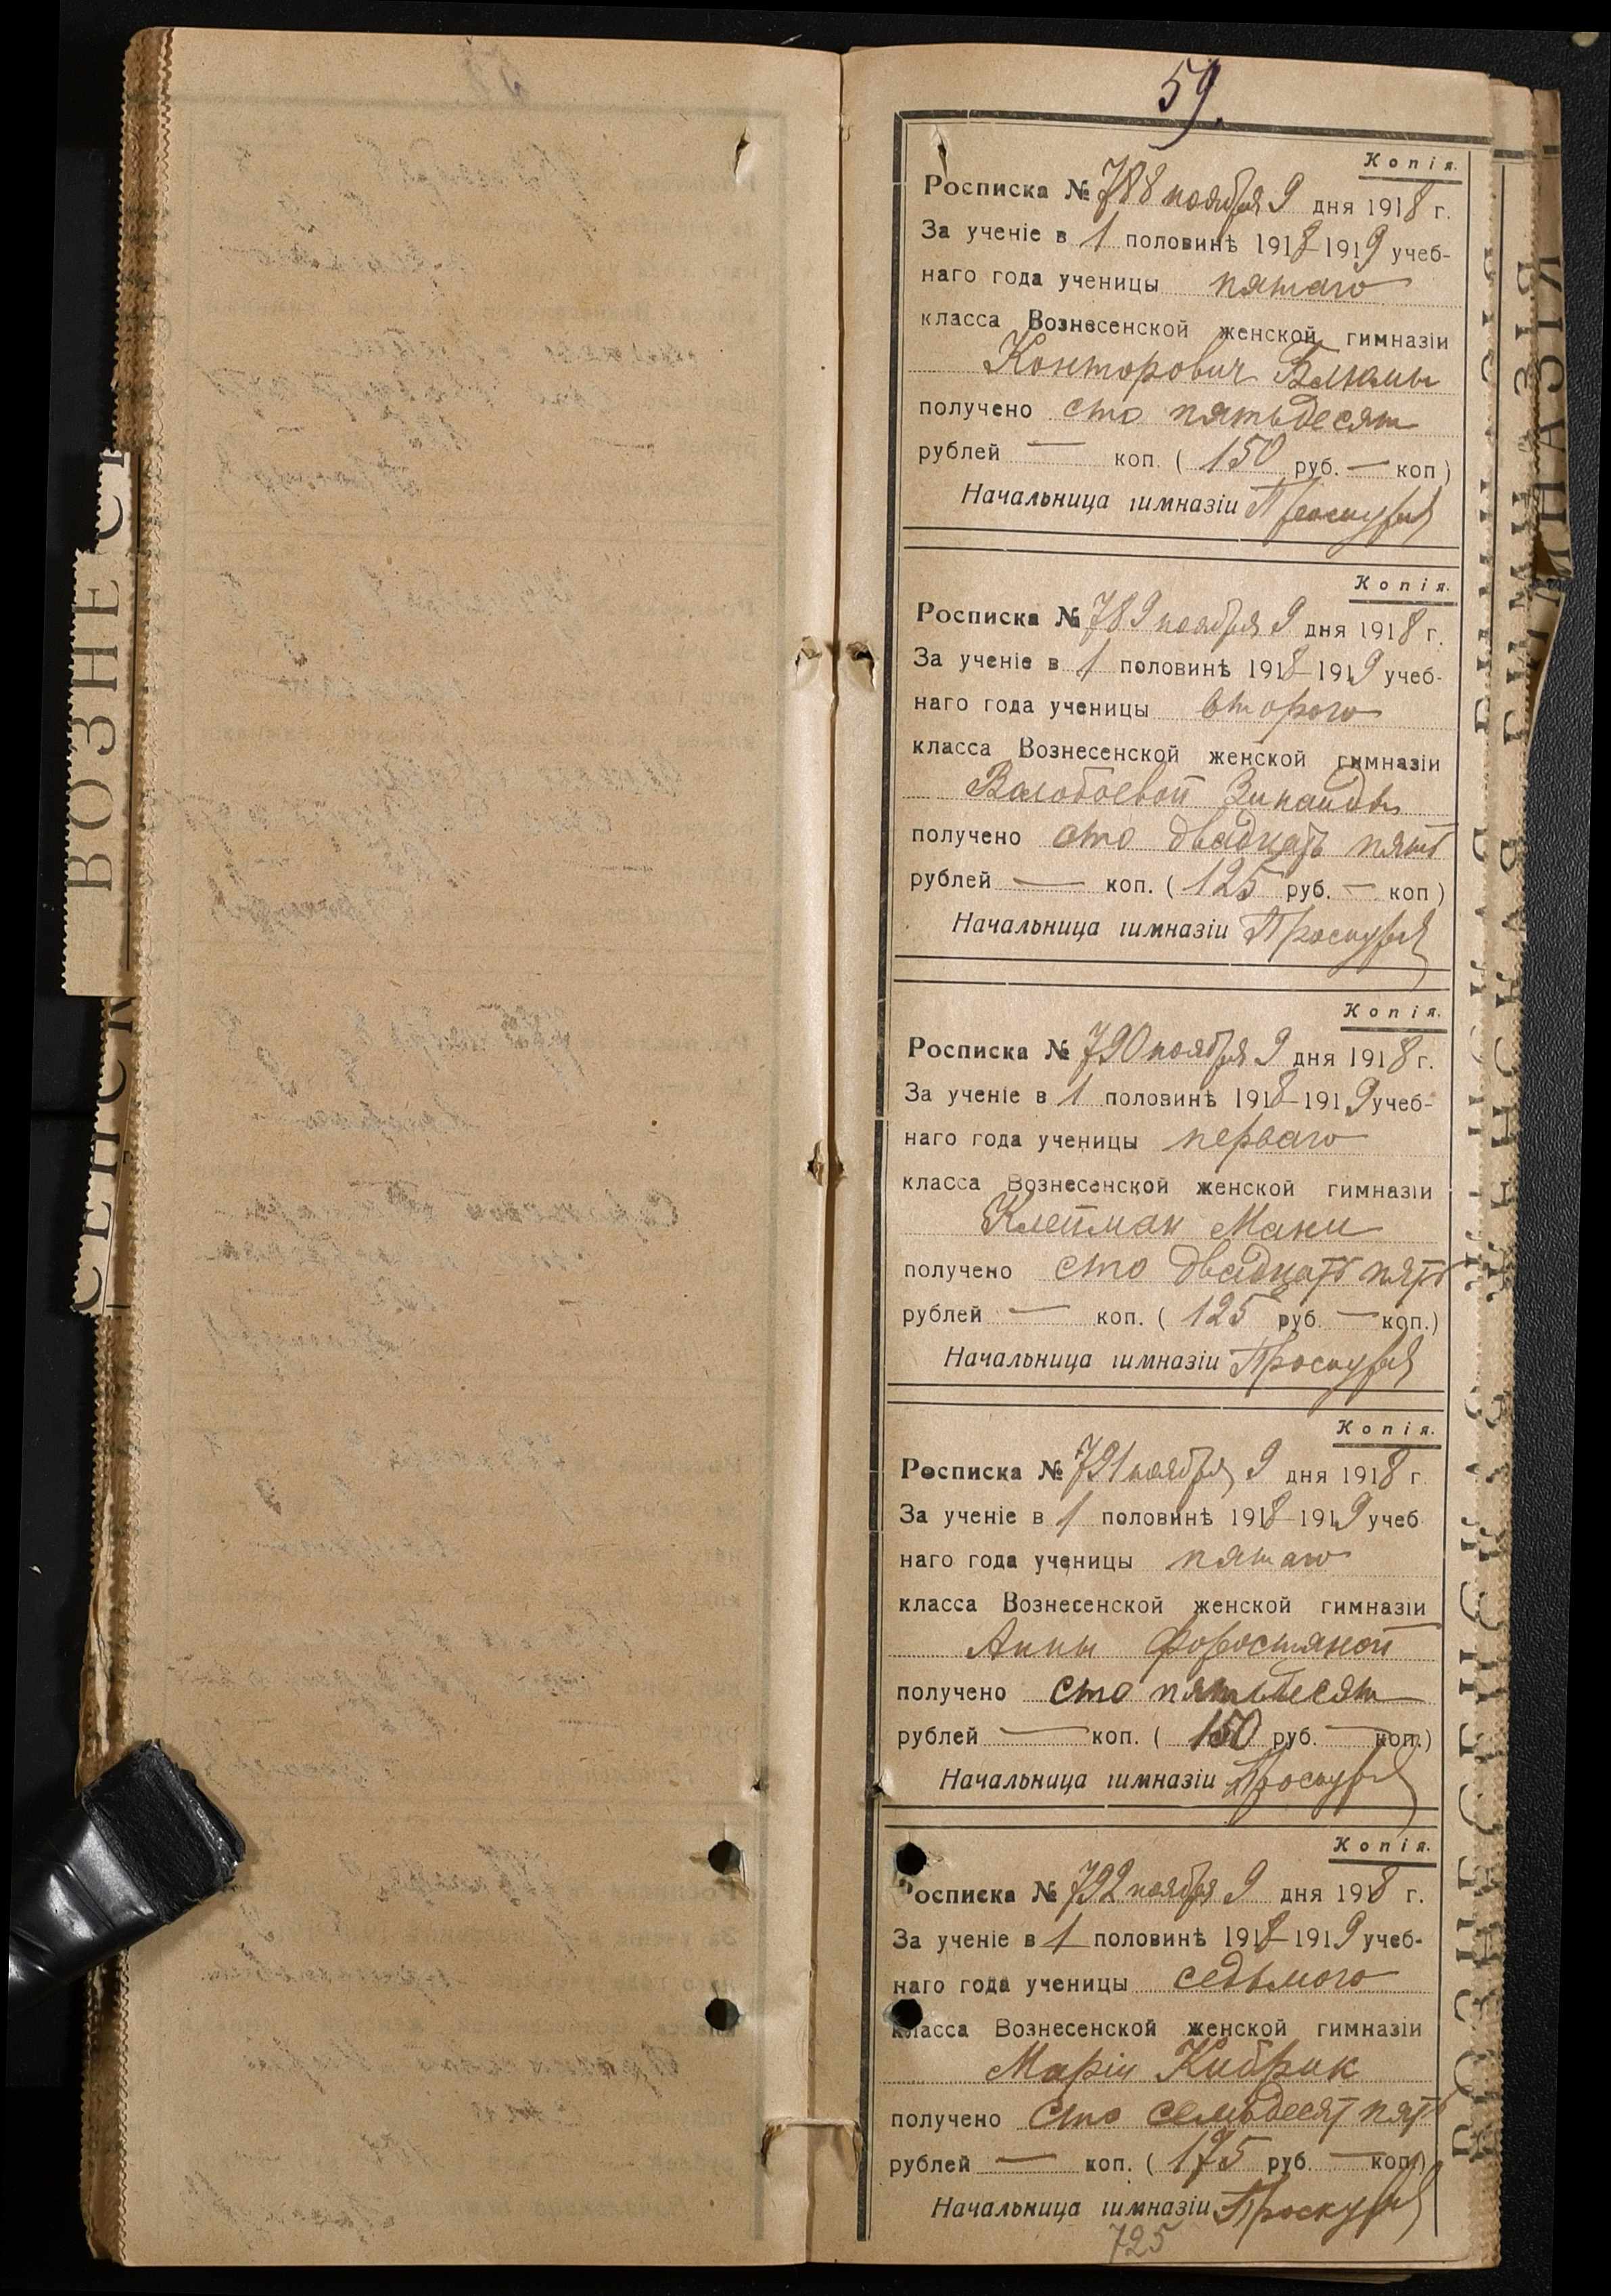 59.
Копія.
Росписка № 788 ноября 9 дня 1918 г.
За ученіе в 1 половинѣ 1918-1919 учеб-
наго года ученицы пятаго
класса Вознесенской женской гимназіи
Конторович Блюмы
получено сто пятьдесят
рублей — коп. ( 150 руб. — коп )
Начальница гимназіи
Копія.
Росписка № 789 ноября 9 дня 1918 г.
За ученіе в 1 половинѣ 1918-1919 учеб-
наго года ученицы второго
класса Вознесенской женской гимназіи
Волобоевой Зинаиды
получено сто двадцать пять
рублей — коп. ( 125 руб. — коп )
Начальница гимназіи
Копія.
Росписка № 790 ноября 9 дня 1918 г.
За ученіе в 1 половинѣ 1918-1919 учеб-
наго года ученицы перваго
класса Вознесенской женской гимназіи
Клейман Мани
получено сто двадцать пять
рублей — коп. ( 125 руб. — коп.)
Начальница гимназіи
Копія.
Росписка № 791 ноября 9 дня 1918 г
За ученіе в 1 половинѣ 1918-1919 учеб
наго года ученицы пятаго
класса Вознесенской женской гимназіи
Анны Форостяной
получено сто пятьдесят
рублей — коп. ( 150 руб. — коп.)
Начальница гимназіи
Копія.
Росписка № 792 ноября 9 дня 1918 г.
За ученіе в 1 половинѣ 1918-1919 учеб-
наго года ученицы седьмого
класса Вознесенской женской гимназіи
Маріи Кибрик
получено сто семьдесят пять
рублей — коп. ( 175 руб. — коп)
Начальница гимназіи
725
ВОЗНЕ
СЕНСК